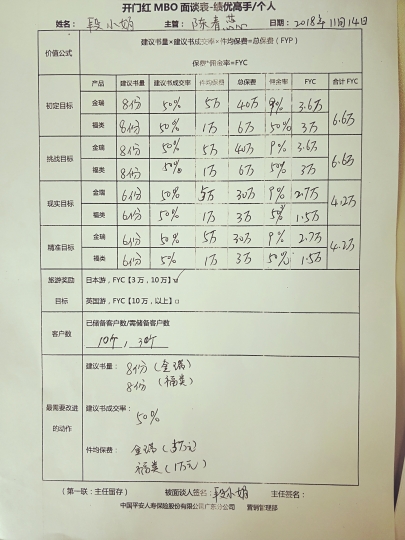 开门红 MBO 面谈表-绩优高手/个人
姓名： 段小娟 主管： 陈春蕊 日期：2018年11月14日
价值公式
建议书量×建议书成交率×件均保费=总保费（FYP）
保费*佣金率=FYC
产品 建议书量 建议书成交率 件均保费 总保费 佣金率 FYC 合计 FYC
初定目标
金瑞 8份 50% 5万 40万 9% 3.6万 6.6万
福类 8份 50% 1万 6万 50% 3万
挑战目标
金瑞 8份 50% 5万 40万 9% 3.6万 6.6万
福类 8份 50% 1万 6万 50% 3万
现实目标
金瑞 6份 50% 5万 30万 9% 2.7万 4.2万
福类 6份 50% 1万 3万 50% 1.5万
精准目标
金瑞 6份 50% 5万 30万 9% 2.7万 4.2万
福类 6份 50% 1万 3万 50% 1.5万
旅游奖励
目标
日本游，FYC【3万，10万】☑
英国游，FYC【10万，以上】□
客户数
已储备客户数/需储备客户数
10个，30个
最需要改进
的动作
建议书量： 8份（金瑞）
8份（福类）
建议书成交率：
50%
件均保费： 金瑞（5万元）
福类（1万元）
（第一联：主任留存） 被面谈人签名：段小娟 主任签名：
中国平安人寿保险股份有限公司广东分公司 营销管理部